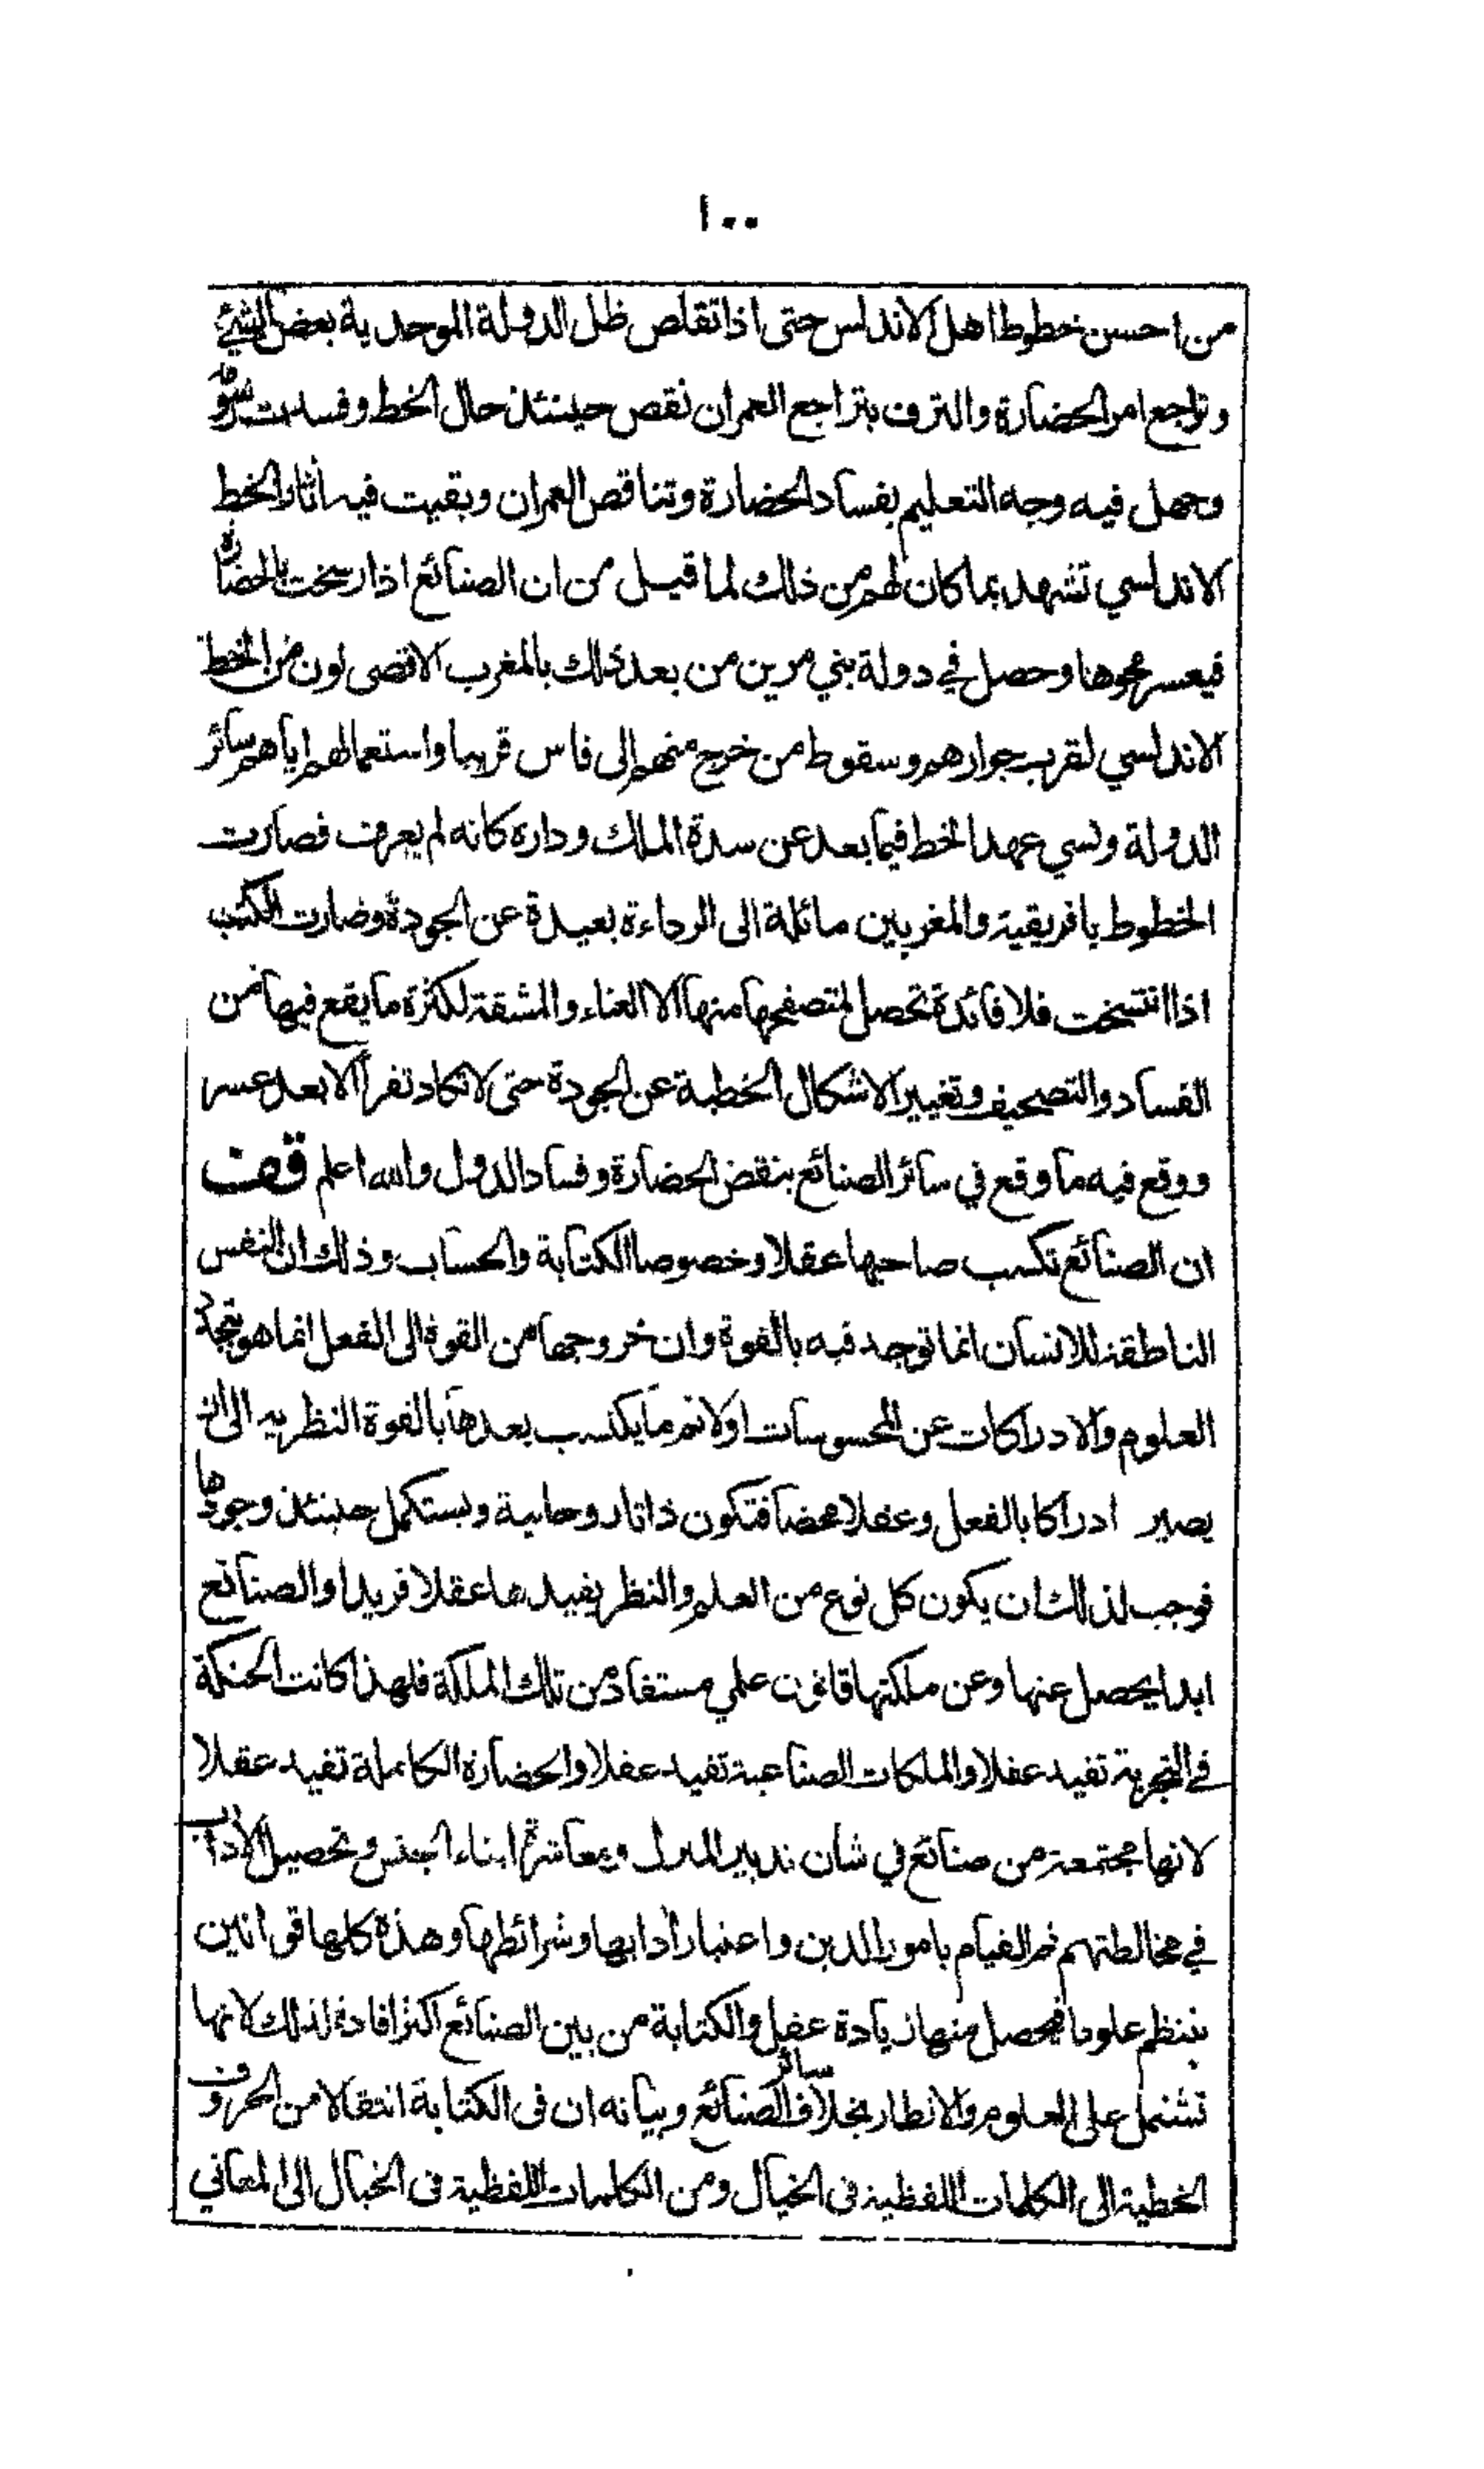 ١٠٠
من احسن خطوط اهل الاندلس حتى اذا تقلص ظل الدولة الموحدية بعض الشئ
وتراجع امر الحضارة والترف بتراجع العمران نقص حينئذ حال الخط وفسدت رسومه
وجهل فيه وجه التعليم بفساد الحضارة وتناقص العمران وبقيت فيه اثار الخط
الاندلسي تشهد بما كان لهم من ذلك لما قيل من ان الصنائع اذا رسخت بالحضارة
فيعسر محوها وحصل في دولة بني مرين من بعد ذلك بالمغرب الاقصى لون من الخط
الاندلسي لقرب جوارهم وسقوط من خرج منهم الى فاس قريبا واستعمالهم اياهم سائر
الدولة ونسي عهد الخط فيما بعد عن سدة الملك وداره كانه لم يعرف فصارت
الخطوط بافريقية والمغربين مائلة الى الرداءة بعيدة عن الجودة وصارت الكتب
اذا انتسخت فلا فائدة تحصل لمتصفحها منها الا العناء والمشقة لكثرة ما يقع فيها من
الفساد والتصحيف وتغيير الاشكال الخطية عن الجودة حتى لا تكاد تقرأ الا بعد عسر
ووقع فيه ما وقع في سائر الصنائع بنقض الحضارة وفساد الدول والله اعلم
ان الصنائع تكسب صاحبها عقلا وخصوصا الكتابة والحساب وذلك ان النفس
الناطقة للانسان انما توجد فيه بالقوة وان خروجها من القوة الى الفعل انما هو بتجدد
العلوم والادراكات عن المحسوسات اولا ثم ما يكتسب بعدها بالقوة النظرية الى ان
يصير ادراكا بالفعل وعقلا محضا فتكون ذاتا روحانية ويستكمل حينئذ وجودها
فوجب لذلك ان يكون كل نوع من العلم والنظر يفيدها عقلا فريدا والصنائع
ابدا يحصل عنها وعن ملكتها قانون علمي مستفاد من تلك الملكة فلهذا كانت الحنكة
في التجربة تفيد عقلا والملكات الصناعية تفيد عقلا والحضارة الكاملة تفيد عقلا
لانها مجتمعة من صنائع في شان تدبير المنزل ومعاشرة ابناء الجنس وتحصيل الاداب
في مخالطتهم ثم القيام بامور الدين واعتبار ادابها وشرائطها وهذه كلها قوانين
تنتظم علوما فيحصل منها زيادة عقل والكتابة من بين الصنائع اكثر افادة لذلك لانها
تشتمل على العلوم والانظار بخلاف سائر الصنائع وبيانه ان في الكتابة انتقالا من الحروف
الخطية الى الكلمات اللفظية في الخيال ومن الكلمات اللفظية في الخيال الى المعاني